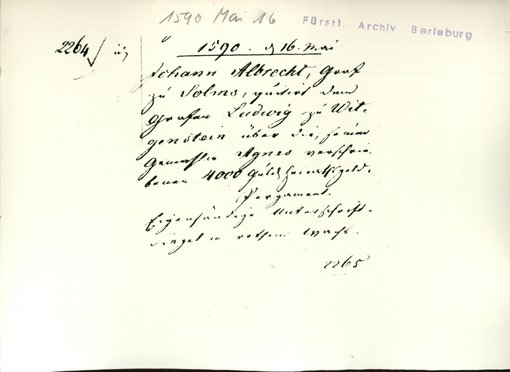 1590 Mai 16
Fürstl. Archiv Berleburg
2264
1590. d 16. Mai
Johann Albrecht, Graf
zu Solms, quitirt dem
Grafen Ludwig zu Wit-
genstein über die, seiner
Gemahlin Agnes verschrie-
benen 4000 Guld. Heirathsgeld.
Pergament.
Eigenhändige Unterschrift.
Siegel in rothem Wachs.
2265